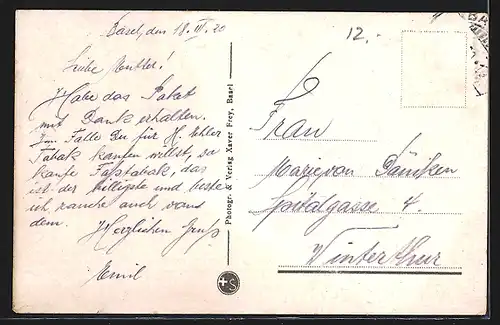 Basel, den 18. VI. 20
Liebe Mutter!
Habe das Paket
mit Dank erhalten.
Im Falle Du für H.
Tabak kaufen willst, so
kaufe Fasstabak, das
ist der billigste und beste
ich rauche auch von
dem.
Herzlichen Gruss
Emil
Photogr. & Verlag Xaver Frey, Basel
12.-
Frau
Marie von Däniken
Spitalgasse 4.
Winterthur